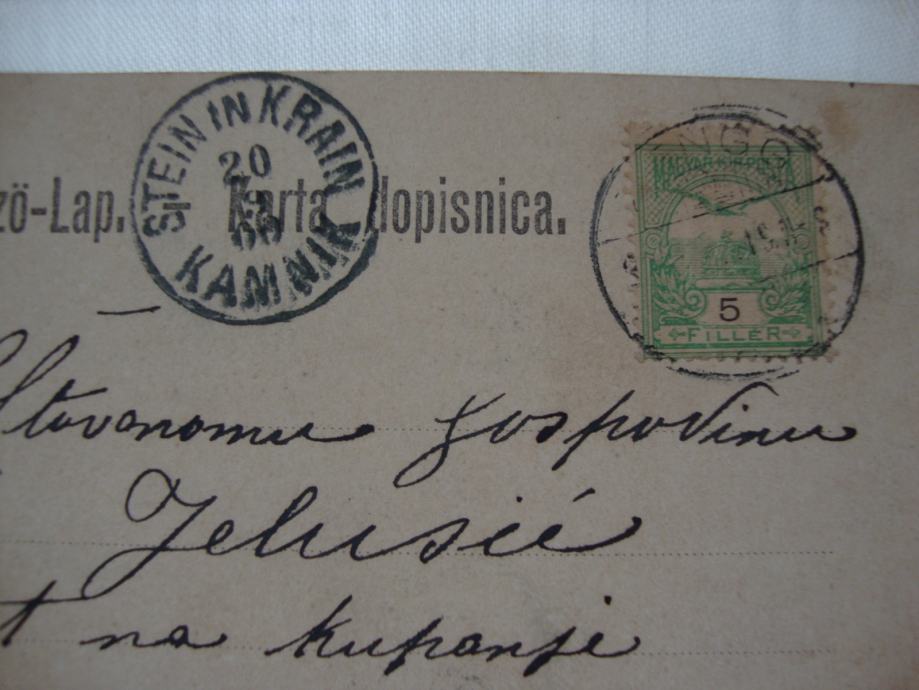 STEIN IN KRAIN
20
KAMNIK
ző-Lap. Karta dopisnica.
MAGYAR KIR. POSTA
5
FILLÉR
Štovanomu gospodinu
Jelusić
na kupanje